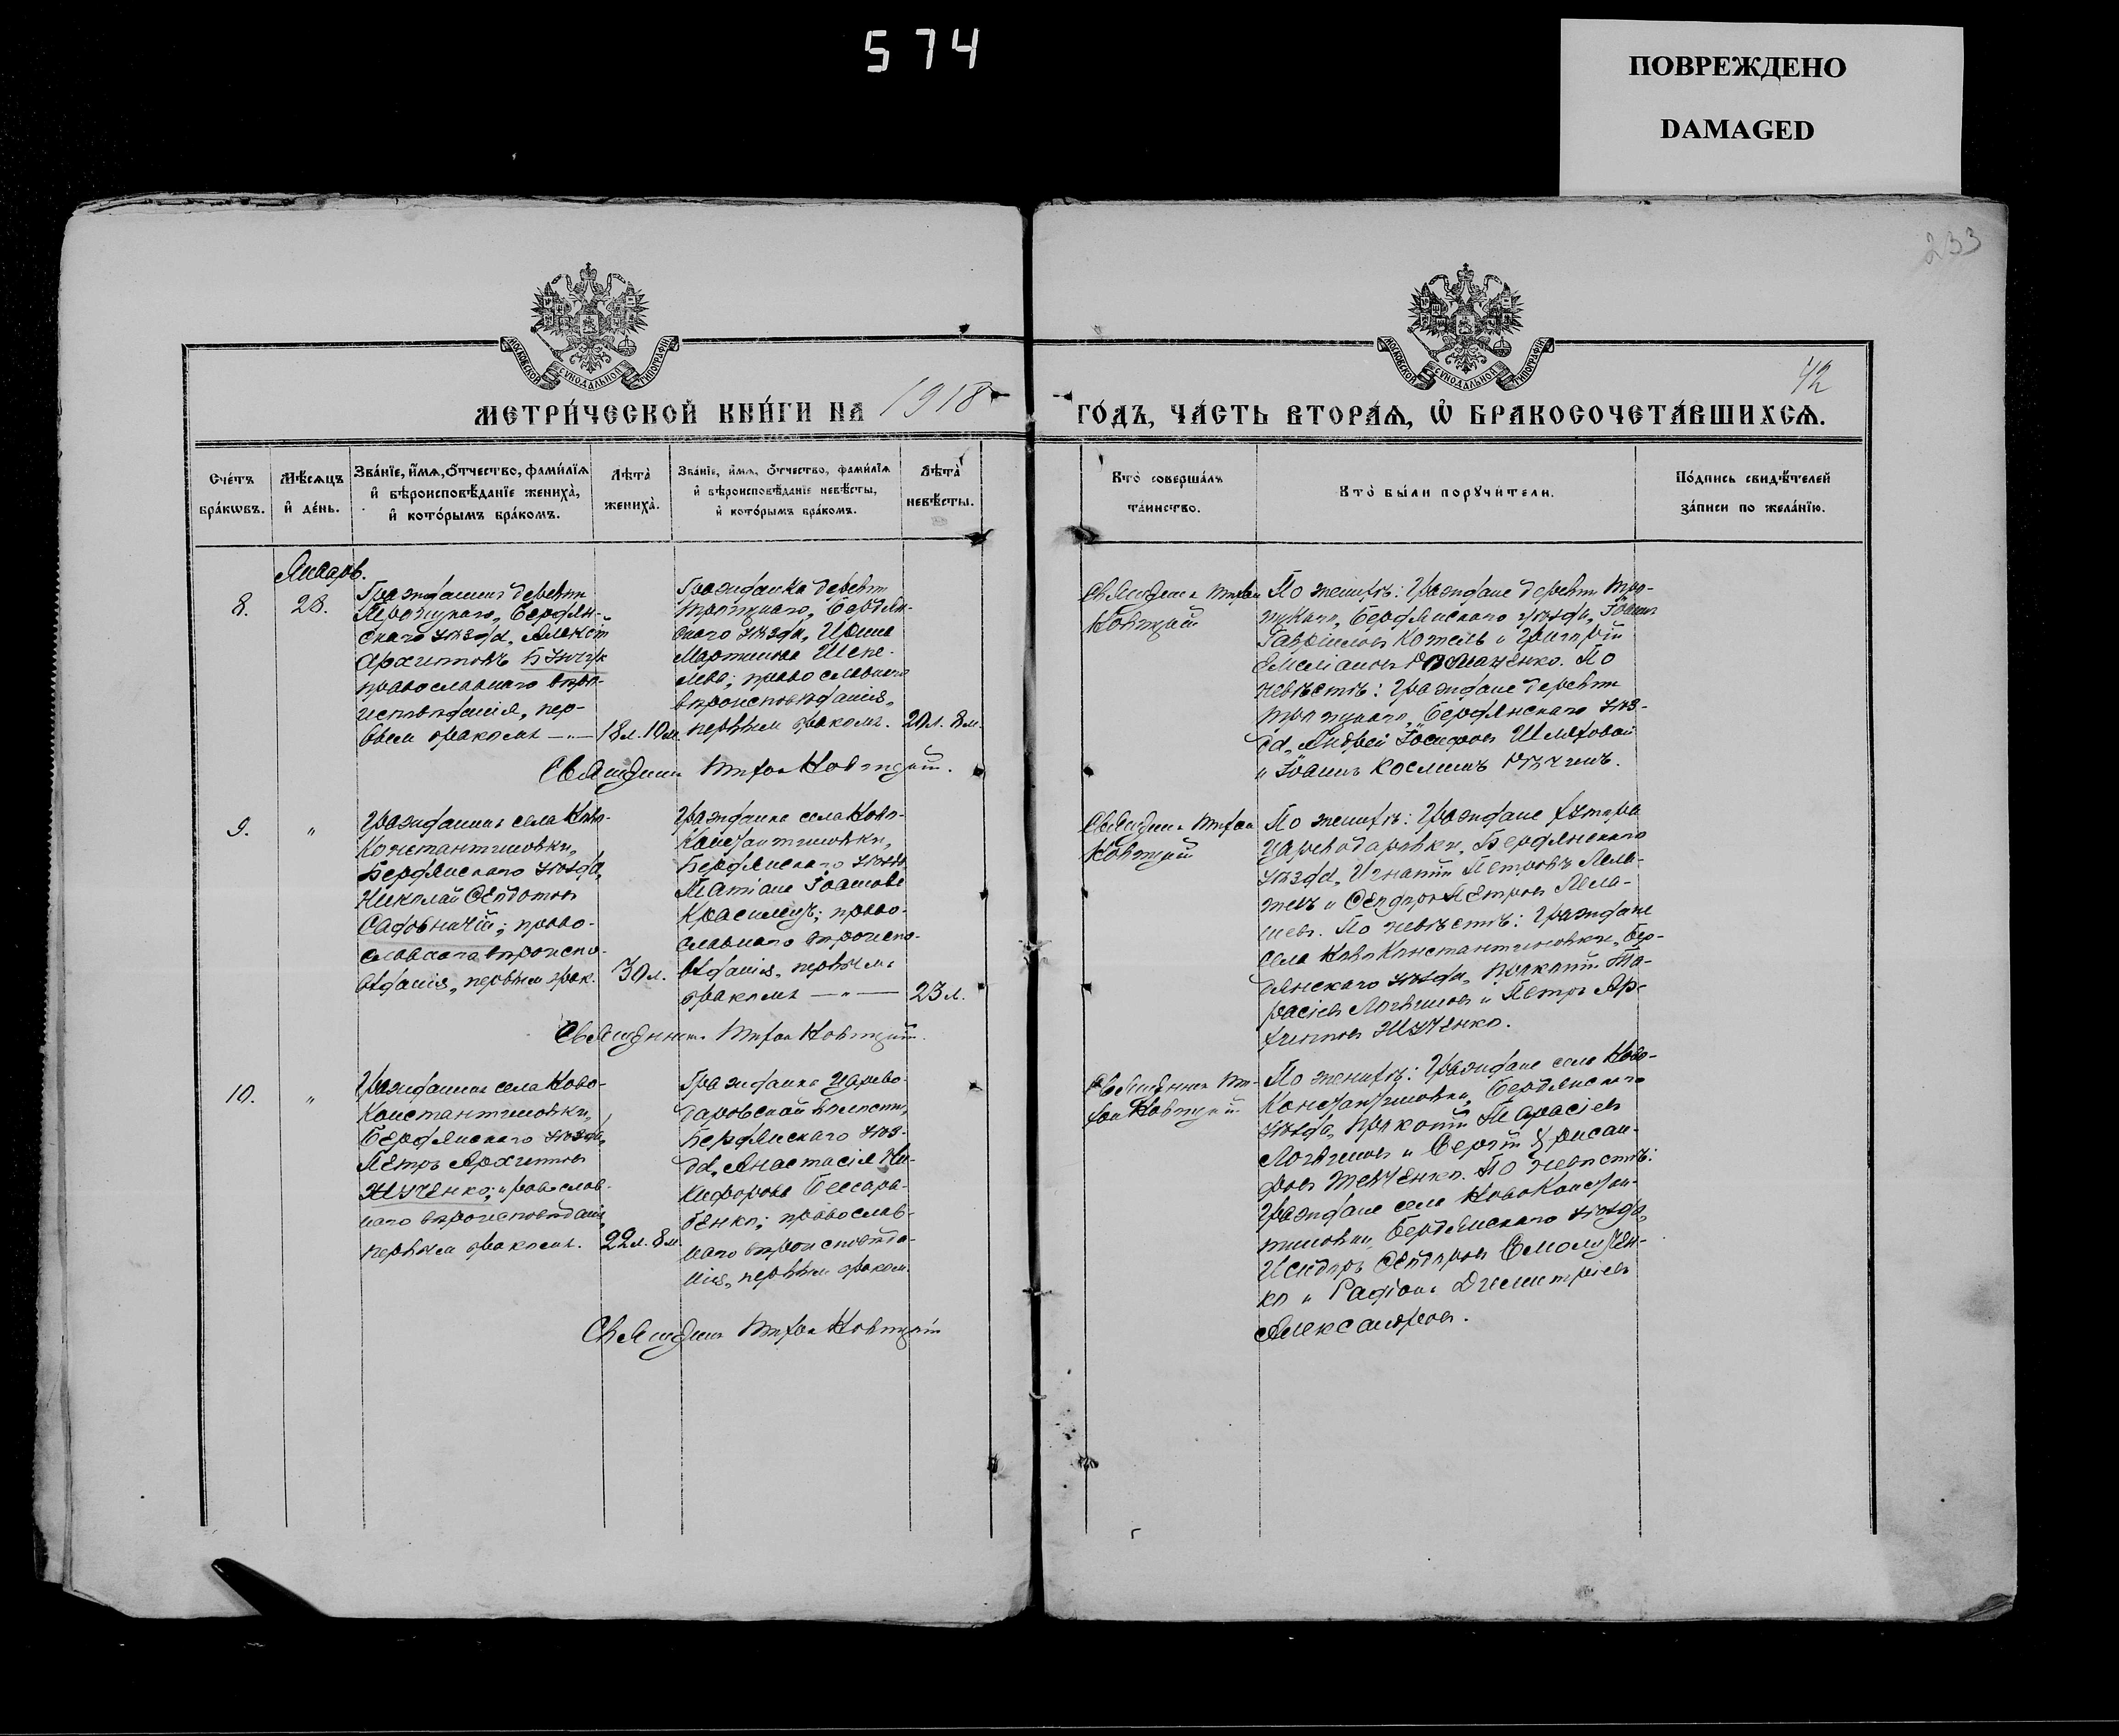 574
ПОВРЕЖДЕНО
DAMAGED
233
42
МОСКОВСКОЙ СѴНОДАЛЬНОЙ ТИПОГРАФІИ
МОСКОВСКОЙ СѴНОДАЛЬНОЙ ТИПОГРАФІИ
МЕТРИ́ЧЕСКОЙ КНИ́ГИ НА 1918 ГО́ДЪ, ЧА́СТЬ ВТОРА́Я, Ѡ҆ БРАКОСОЧЕТА́ВШИХСѦ.
Сче́тъ
бра́кѡвъ.
Мѣ́сяцъ
и҆ де́нь.
Зва́нїе, и҆́мѧ, ѻ҆́тчество, фами́лїѧ
и҆ вѣроисповѣ́данїе жениха̀,
и҆ кото́рымъ бра́комъ.
Лѣта̀
жениха̀.
Зва́нїе, и҆́мѧ, ѻ҆́тчество, фами́лїѧ
и҆ вѣроисповѣ́данїе невѣ́сты,
и҆ кото́рымъ бра́комъ.
Лѣта̀
невѣ́сты.
Кто̀ соверша́лъ
та́инство.
Кто̀ бы́ли порꙋчи́тели.
По́дпись свидѣ́телей
за́писи по жела́нїю.
Январь.
8.
28.
Гражданинъ деревни
Троицкаго, Бердян-
скаго уѣзда, Алексѣй
Архиповъ
православнаго вѣро-
исповѣданія, пер-
вымъ бракомъ — „ —
18л. 10м.
Гражданка деревни
Троицкаго, Бердян-
скаго уѣзда, Ирина
Мартинова Шепе-
лева; православнаго
вѣроисповѣданія,
первымъ бракомъ.
20л. 8м.
Священникъ Новицкій.
Священникъ
Новицкій
По женихѣ: Граждане деревни Тро-
ицкаго, Бердянскаго уѣзда, Іоаннъ
Гавріиловъ Котель и Григорій
Емеліановъ. По
невѣстѣ: Граждане деревни
Троицкаго, Бердянскаго уѣз-
да, Андрей Іосифовъ
и Іоаннъ Косминъ.
9.
„
Гражданинъ села Ново-
Константиновки,
Бердянскаго уѣзда,
Николай Ѳедотовъ
Садовничій; право-
славнаго вѣроиспо-
вѣданія, первымъ брак.
30л.
Гражданка села Ново-
Константиновки,
Бердянскаго уѣзда
Татіана Іоаннова
православ-
славнаго вѣроиспо-
вѣданія, первымъ
бракомъ — „ —
23л.
Священникъ Новицкій.
Священникъ
Новицкій
По женихѣ: Граждане хутора
Цареводаровки, Бердянскаго
уѣзда, Игнатій Петровъ
и Ѳедоръ Петровъ
По невѣстѣ: Граждане
села НовоКонстантиновки, Бер-
дянскаго уѣзда, Прокопій Та-
расіевъ Логвиновъ и Петръ Ар-
хиповъ Жученко.
10.
„
Гражданинъ села Ново-
Константиновки,
Бердянскаго уѣзда,
Петръ Архиповъ
Жученко; православ-
наго вѣроисповѣданія,
первымъ бракомъ.
22л. 8м.
Гражданка Царево-
даровской волости,
Бердянскаго уѣз-
да, Анастасія Ни-
кифорова Бессара-
бенко; православ-
наго вѣроисповѣда-
нія, первымъ браком.
Священникъ Новицкій
Священникъ
Новицкій
По женихѣ: Граждане села Ново-
Константиновки, Бердянскаго
уѣзда, Прокопій Тарасіевъ
Логвиновъ и Сергій Хрисан-
фовъ Шевченко. По невѣстѣ:
Граждане села НовоКонстан-
тиновки, Бердянскаго уѣзда,
Исидоръ Ѳедоровъ
и Родіонъ Димитріевъ
Александровъ.